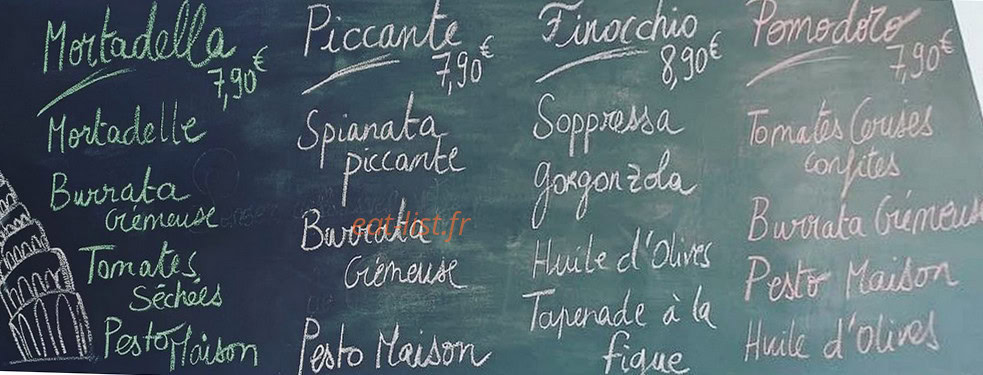 Mortadella
7,90€
Mortadelle
Burrata
Crémeuse
Tomates
Séchées
Pesto Maison
Piccante
7,90€
Spianata
piccante
Burrata
Crémeuse
Pesto Maison
Finocchio
8,90€
Soppressa
gorgonzola
Huile d'Olives
Tapenade à la
figue
Pomodoro
7,90€
Tomates Cerises
confites
Burrata Crémeuse
Pesto Maison
Huile d'Olives
eat-list.fr